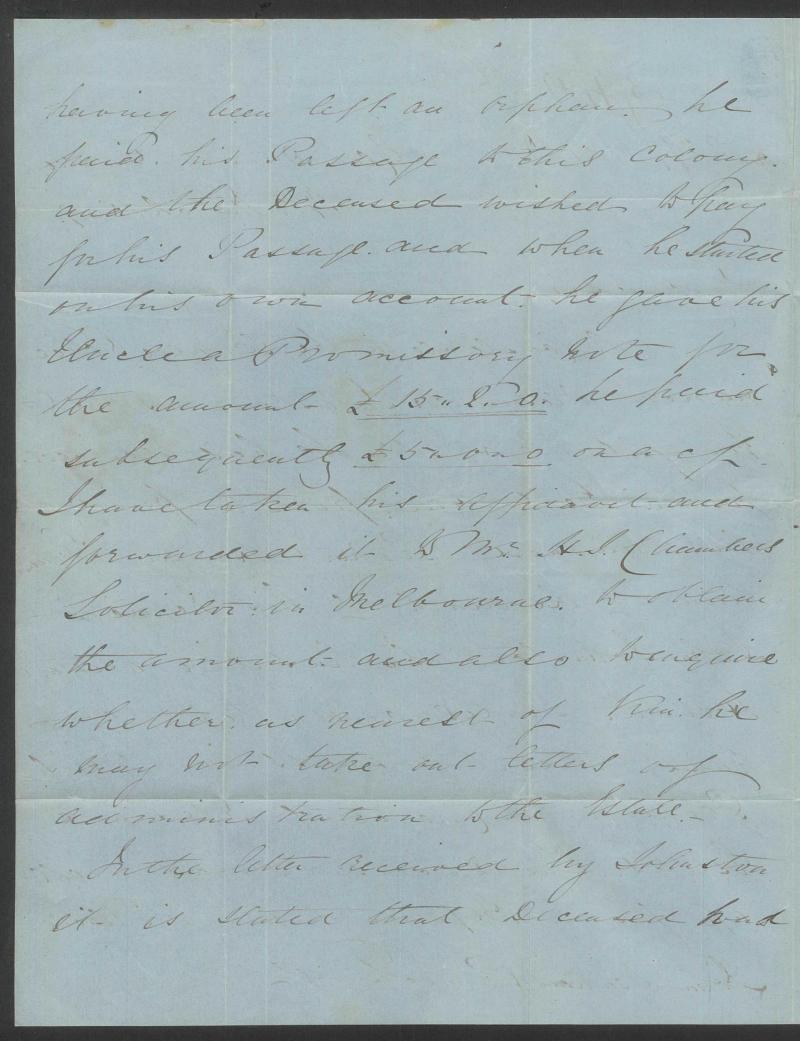 having been left an orphan. he
paid his Passage to this Colony.
and the Deceased wished to pay
for his Passage. and when he started
on his own account. he gave his
Uncle a Promissory note for
the amount £15.. 2.. 0. he paid
subsequently £5 .. 0 .. 0 on a/c of
I have taken his affidavit and
forwarded it to Mr. H.J. Chambers
Solicitor in Melbourne. to obtain
the amount. and also to enquire
whether as nearest of Kin. he
may not take out letters of
administration to the Estate.-
In the letter received by Johnston
it is stated that Deceased had